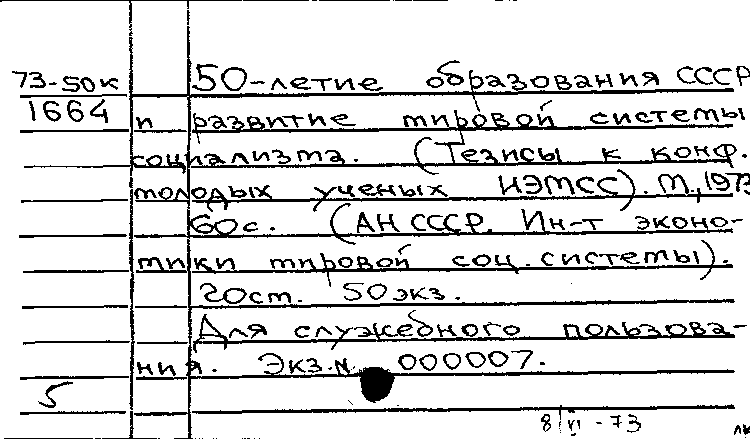 73-50к 50-летие образования СССР
1664 и развитие мировой системы
социализма. (Тезисы к конф.
молодых ученых ИЭМСС). М., 1973
60с. (АН СССР. Ин-т эконо-
мики мировой соц. системы).
20см. 50экз.
Для служебного пользова-
ния. Экз. N 000007.
5
8/VI - 73
лк